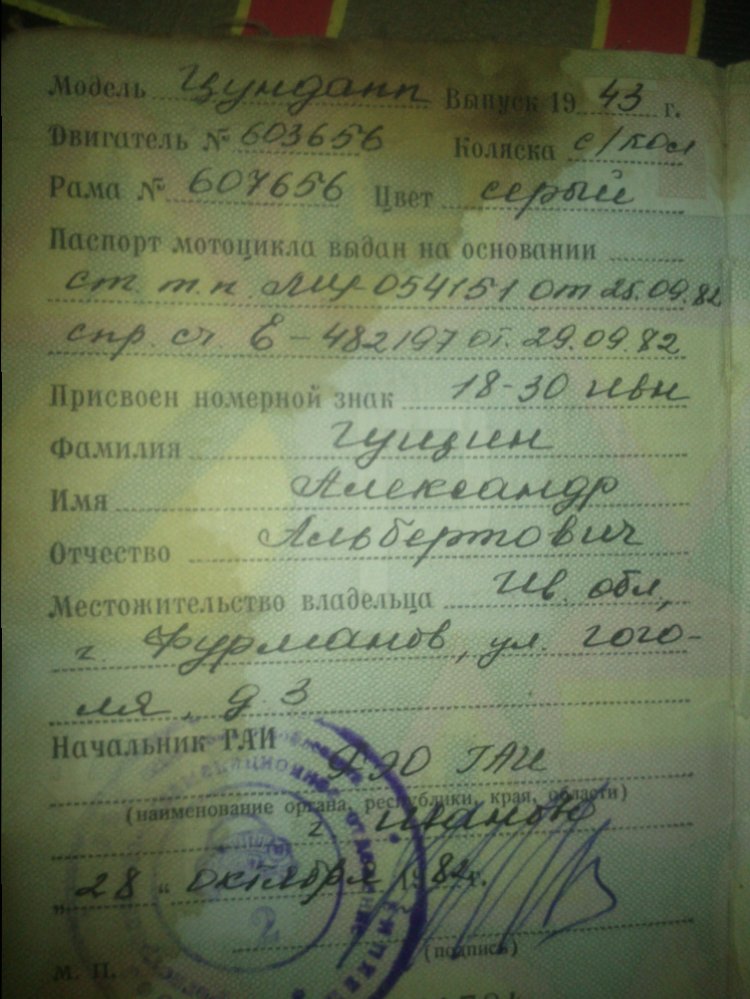 Модель Цундапп Выпуск 1943 г.
Двигатель № 603656 Коляска с/кол
Рама № 607656 Цвет серый
Паспорт мотоцикла выдан на основании
ст. т.п. ЛЩ 054151 от 25.09.82
спр. сч. Е-482197 от. 29.09.82
Присвоен номерной знак 18-30 ивн
Фамилия Гущин
Имя Александр
Отчество Альбертович
Местожительство владельца Ив. обл,
г. Фурманов, ул. Гого-
ля, д. 3
Начальник ГАИ РЭО ГАИ
(наименование органа, республики, края, области)
г. Иваново
„28“ октября 1982 г.
(подпись)
М. П.